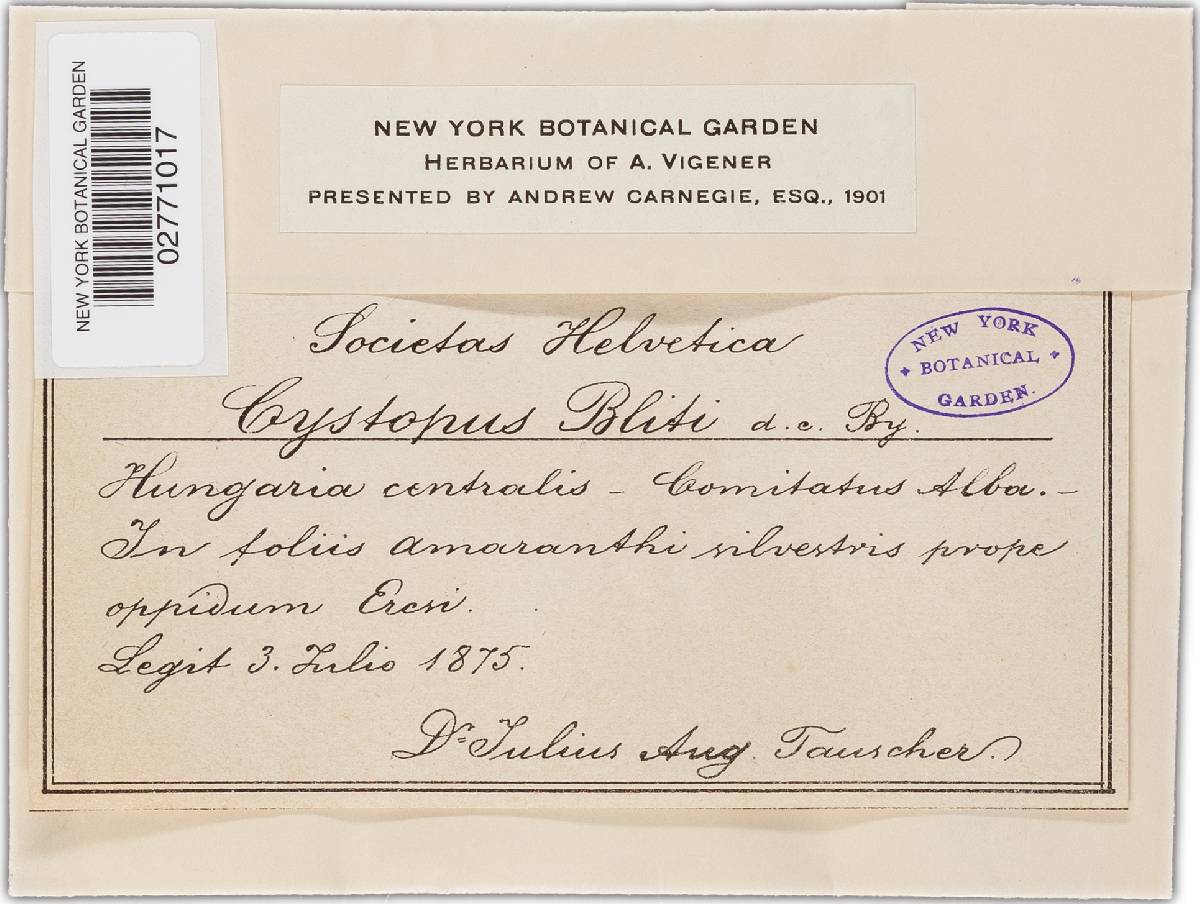 NEW YORK BOTANICAL GARDEN
02771017
NEW YORK BOTANICAL GARDEN
HERBARIUM OF A. VIGENER
PRESENTED BY ANDREW CARNEGIE, ESQ., 1901
NEW YORK
BOTANICAL
GARDEN.
Societas Helvetica
Cystopus Bliti d. c. By.
Hungaria centralis – Comitatus Alba. –
In foliis amaranthi silvestris prope
oppidum Ercsi.
Legit 3. Julio 1875.
Dr. Julius Aug. Tauscher.